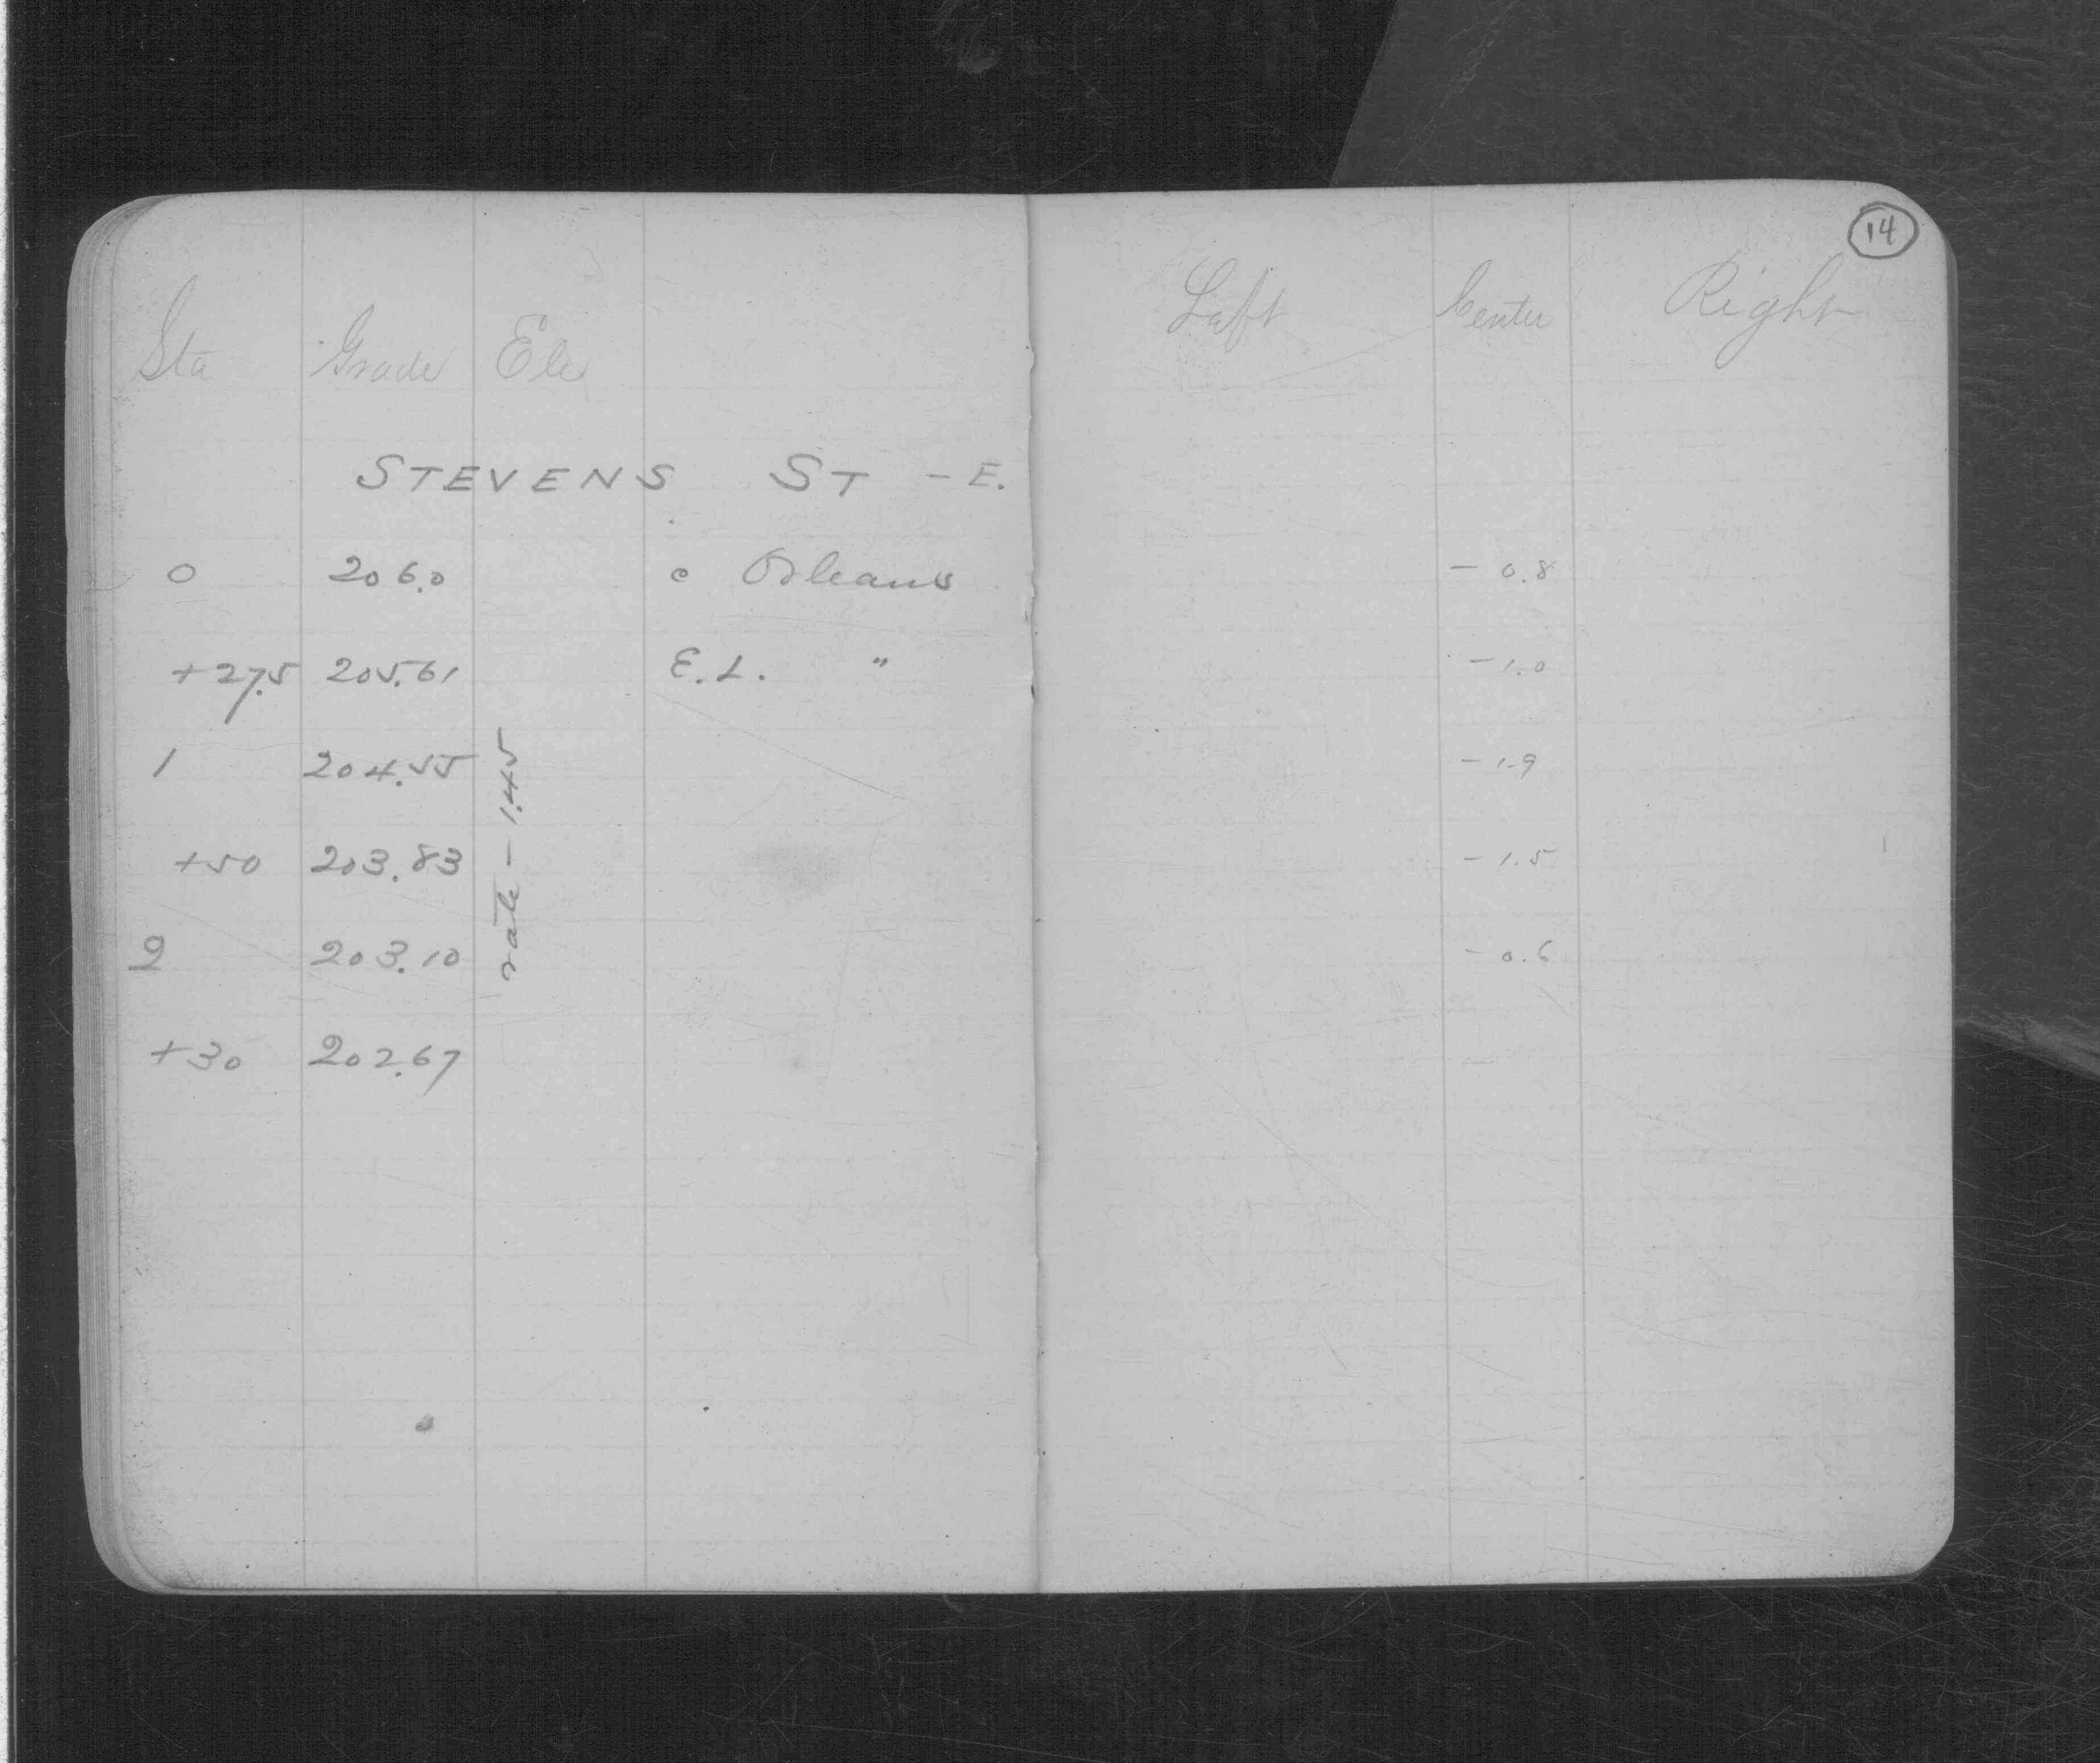 14
Sta Grade Ele Left Center Right
STEVENS ST - E.
0 206.0 c Orleans - 0.8
+27.5 205.61 E.L. " - 1.0
1 204.55 - 1.9
+50 203.83 - 1.5
2 203.10 - 0.6
+30 202.67 -
rate - 1.45